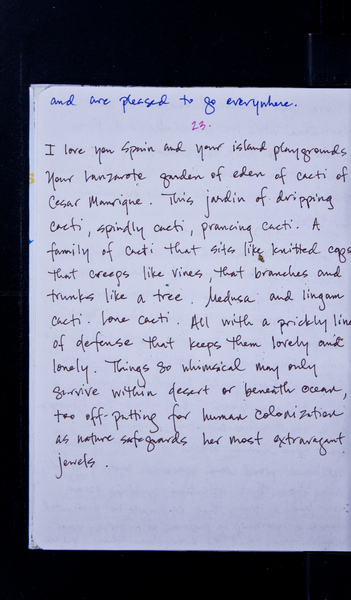 and are pleased to go everywhere.
23.
I love you Spain and your island playgrounds
Your Lanzarote garden of eden of cacti of
Cesar Manrique. This jardin of dripping
cacti, spindly cacti, prancing cacti. A
family of cacti that sits like knitted caps
that creeps like vines, that branches and
trunks like a tree. Medusa and lingam
cacti. Lone cacti. All with a prickly line
of defense that keeps them lovely and
lonely. Things so whimsical may only
survive within desert or beneath ocean,
too off-putting for human colonization
as nature safeguards her most extravagant
jewels.